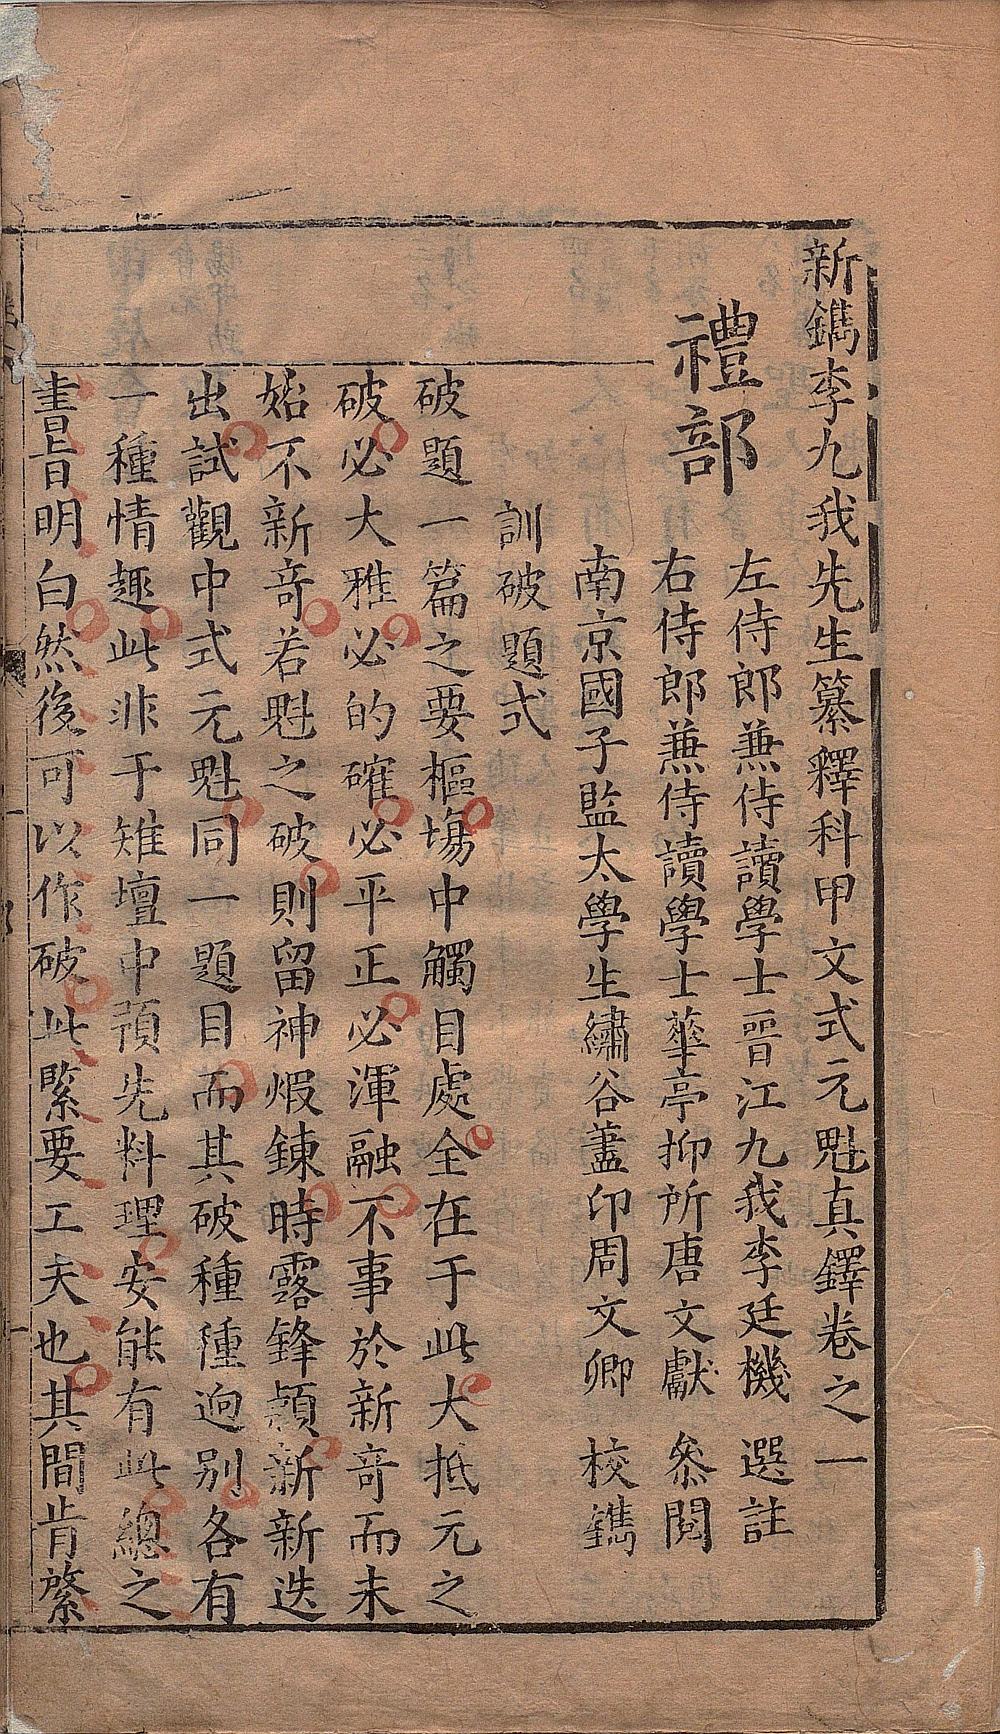 新鐫李九我先生纂釋科甲文式元魁真鐸卷之一
禮部
左侍郎兼侍讀學士晉江九我李廷機 選註
右侍郎兼侍讀學士華亭抑所唐文獻 叅閱
南京國子監太學生繡谷藎印周文卿 校鐫
訓破題式
破題一篇之要樞塲中觸目處全在于此大抵元之
破必大雅必的確必平正必渾融不事於新竒而未
始不新竒若魁之破則留神煆鍊時露鋒頴新新迭
出試觀中式元魁同一題目而其破種種逈别各有
一種情趣此非于雉壇中預先料理安能有此總之
書旨明白然後可以作破此緊要工夫也其間肯綮